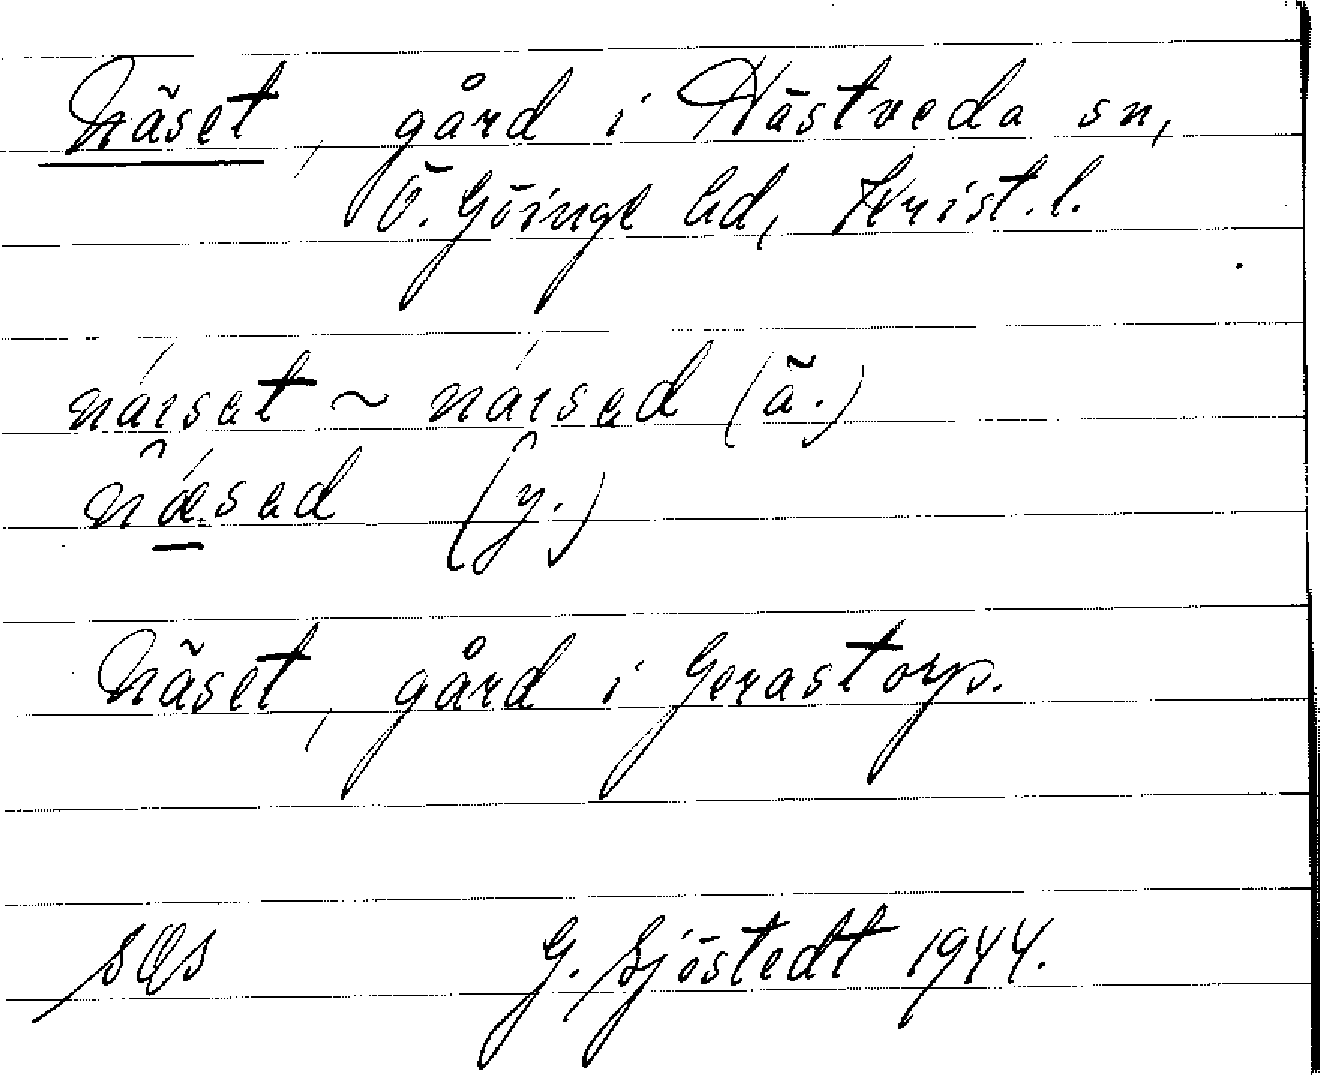 Näset, gård i Hästveda sn,
Ö. Göinge hd, Krist. l.
náıset ~ náısed (ä.)
nǽsed (y.)
Näset, gård i Gerastorp.
G. Sjöstedt 1944.